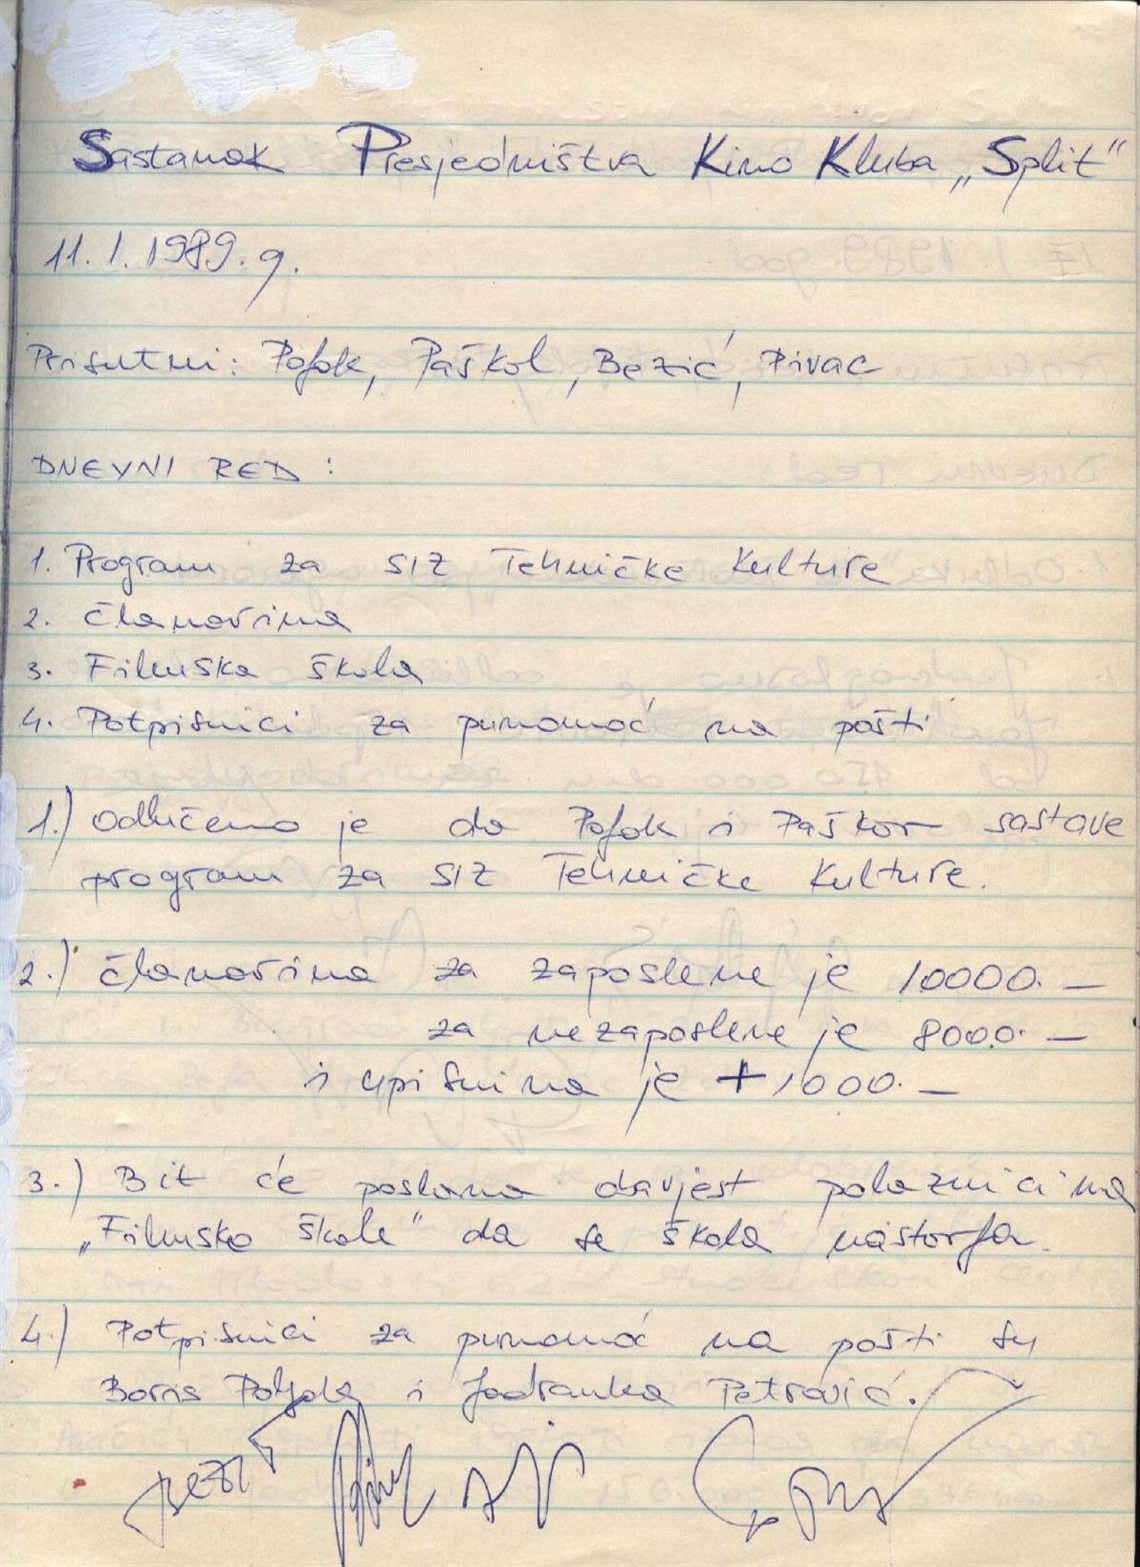 Sastanak Presjedništva Kino Kluba „Split"
11. 1. 1989. g.
Prisutni: Poljak, Paškal, Bezić, Pivac
DNEVNI RED :
1. Program za SIZ Tehničke Kulture
2. Članarina
3. Filmska škola
4. Potpisnici za punomoć na pošti
1.) Odlučeno je da Poljak i Paškal sastave
program za SIZ Tehničke Kulture.
2.) Članarina za zaposlene je 10000.—
za nezaposlene je 8000.—
i upisnina je + 1000.—
3.) Bit će poslana obavjest polaznicima
„Filmske škole" da se škola nastavlja.
4.) Potpisnici za punomoć na pošti su
Boris Poljak i Jadranka Petrović.